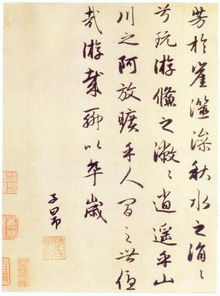 芳於崖澨澡秋水之涓〻
兮玩游鯈之潎〻逍遙乎山
川之阿放曠乎人間之世優
哉游哉聊以卒歲
子昂